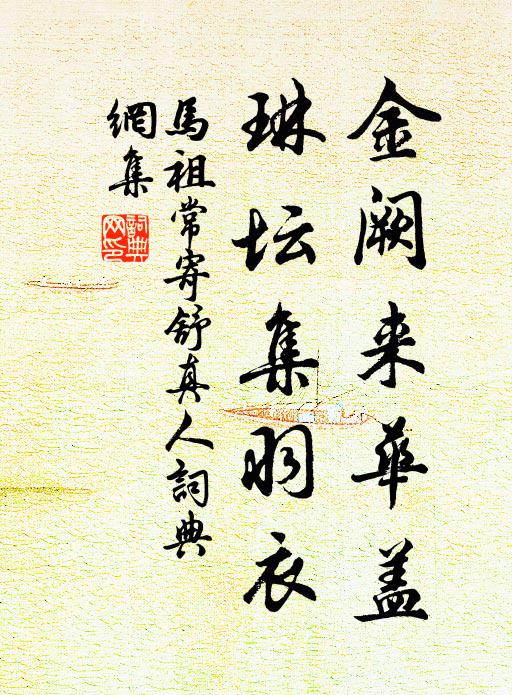 金阙来华盖
琳坛集羽衣
馬祖常寄舒真人詞典
網集
詞典
网印